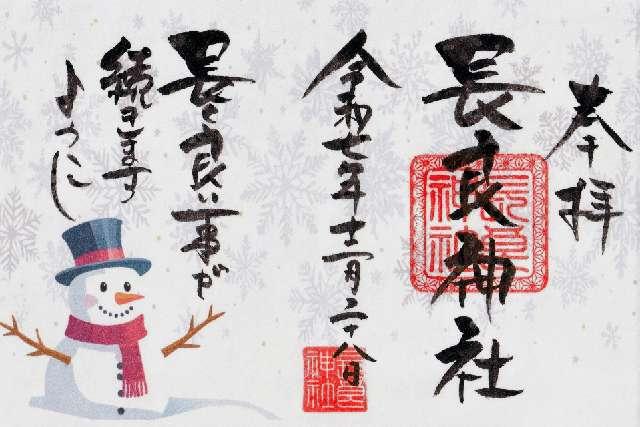 奉拝
長良神社
長良神社
令和七年十二月二十八日
長良神社
長く良い事が
続きます
ように